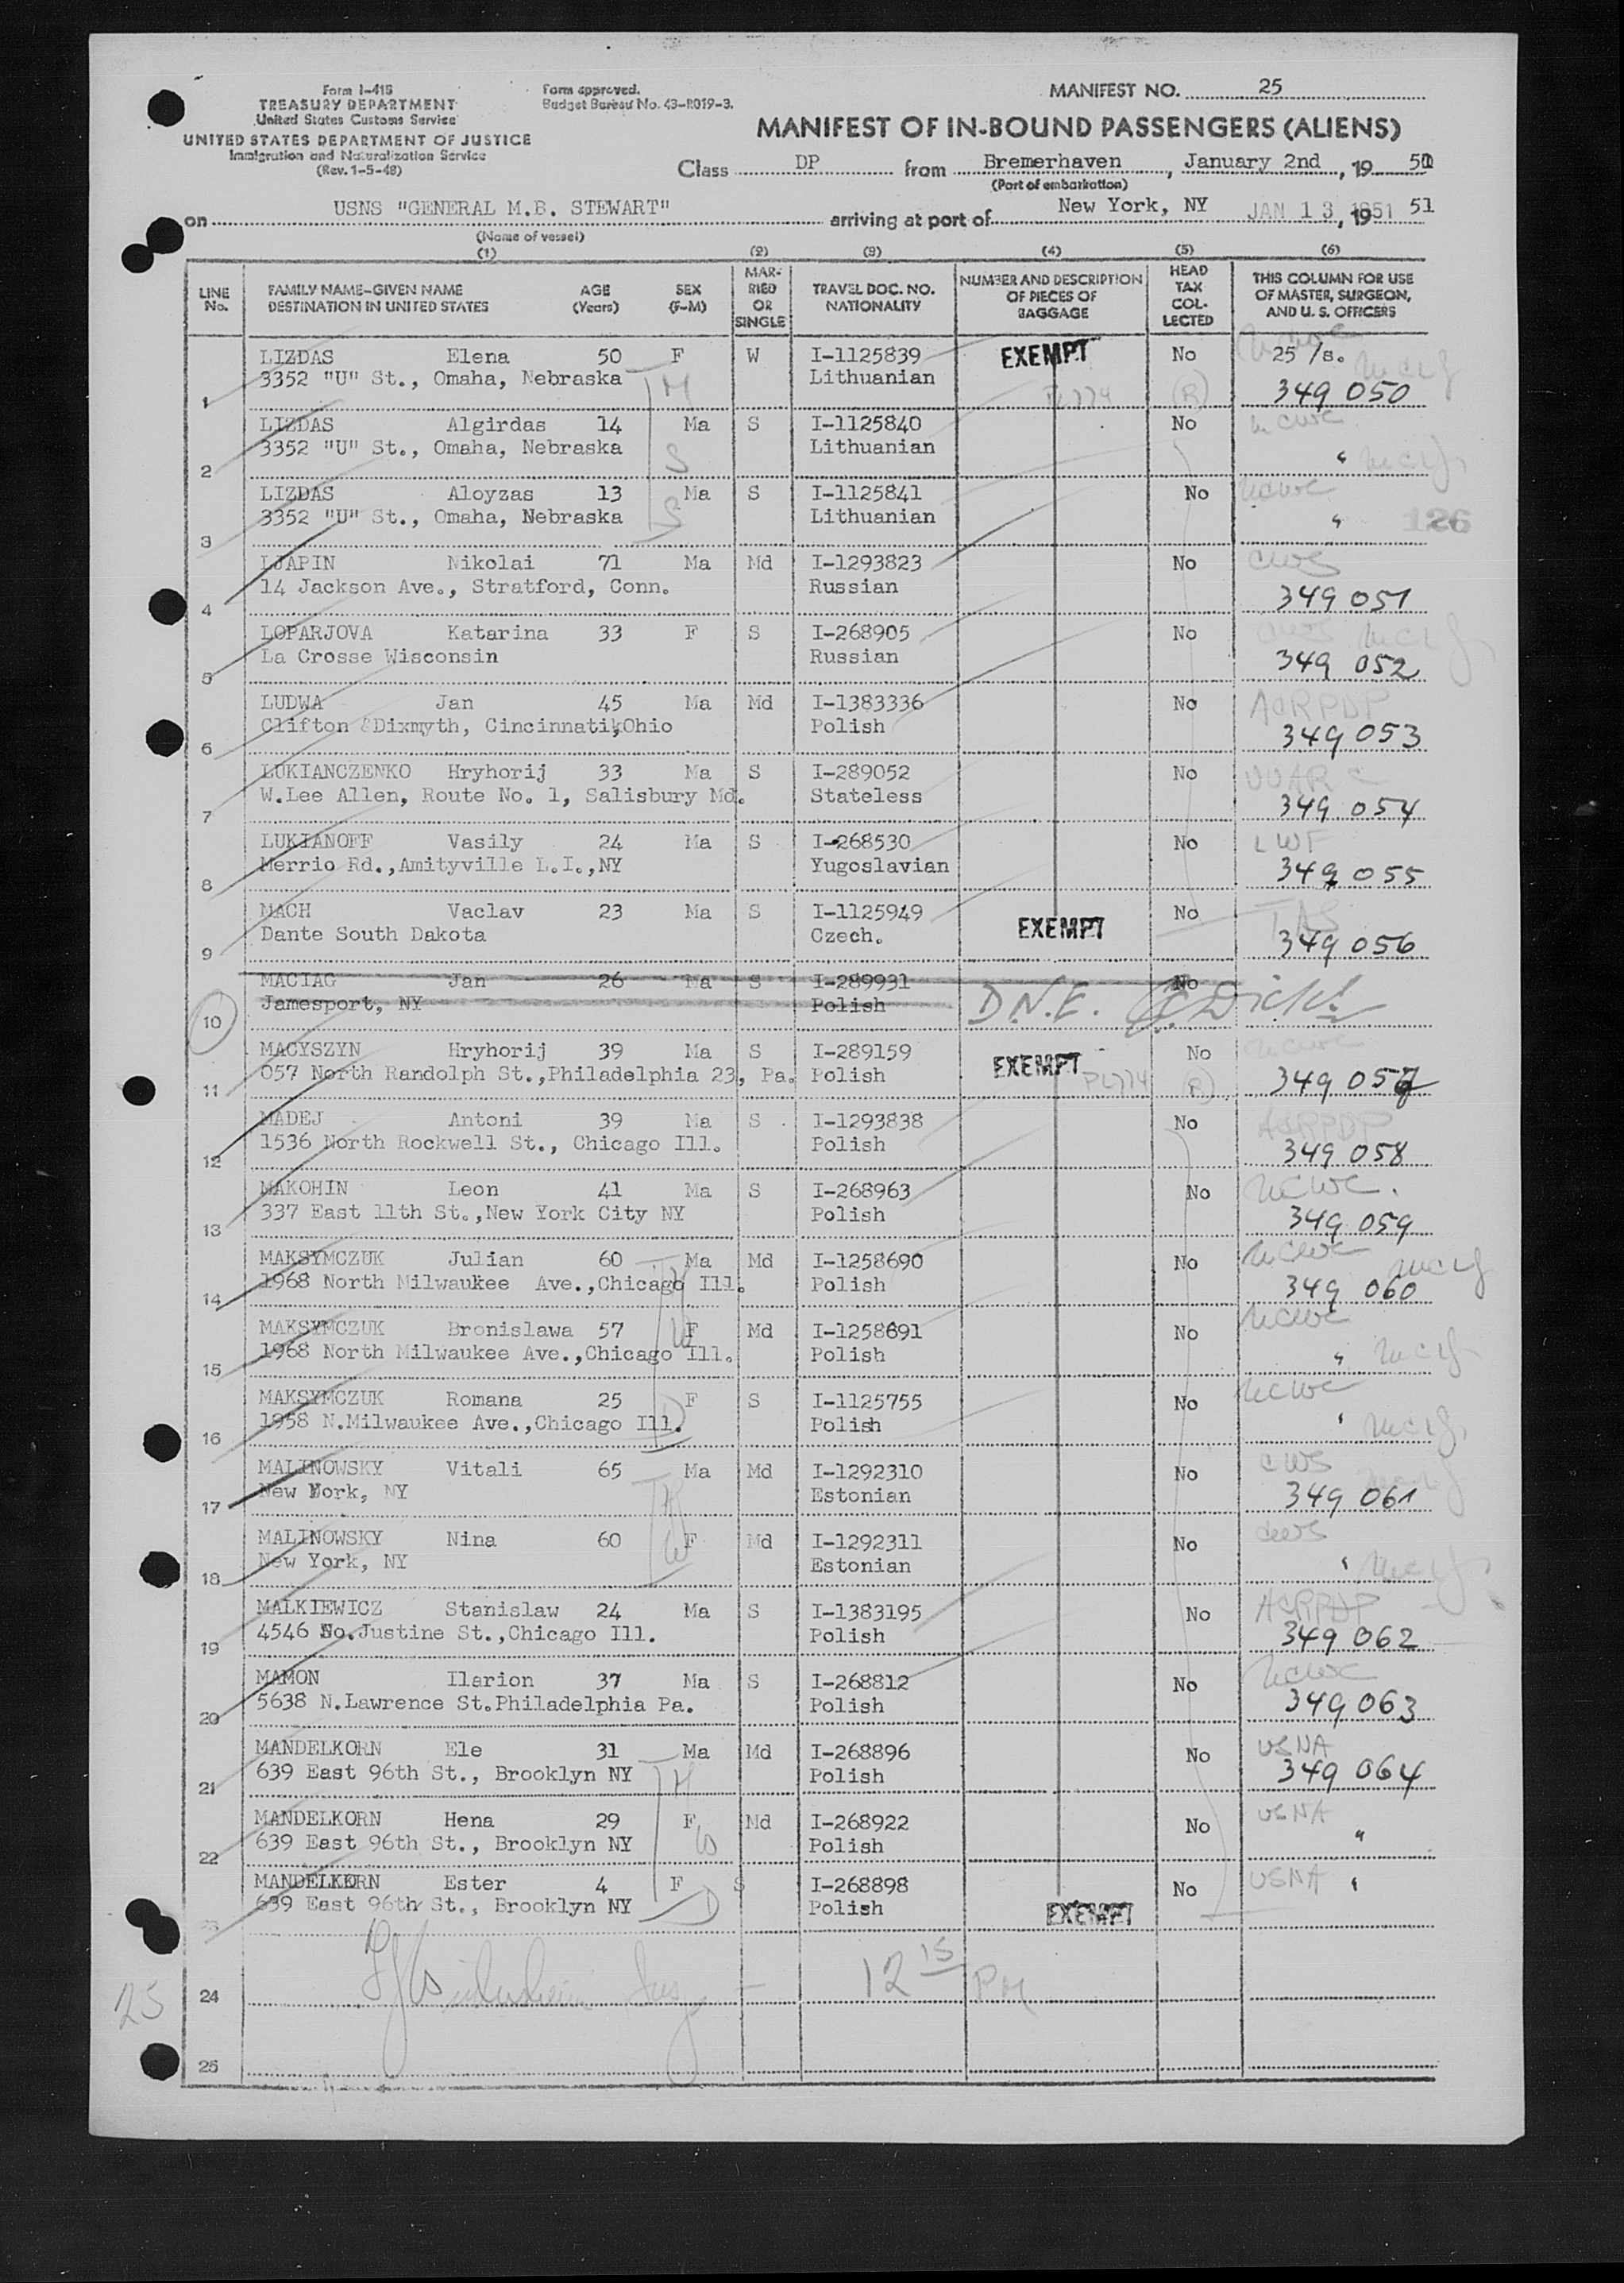 Form I-415
TREASURY DEPARTMENT
United States Customs Service
UNITED STATES DEPARTMENT OF JUSTICE
Immigration and Naturalization Service
(Rev. 1-5-48)
Form approved.
Budget Bureau No. 43-R019-3.
MANIFEST NO. 25
MANIFEST OF IN-BOUND PASSENGERS (ALIENS)
Class DP from Bremerhaven, January 2nd, 19 51
(Port of embarkation)
on USNS "GENERAL M.B. STEWART" arriving at port of New York, NY JAN 13 1951, 19 51
(Name of vessel)
(1) (2) (3) (4) (5) (6)
LINE No. FAMILY NAME-GIVEN NAME DESTINATION IN UNITED STATES AGE (Years) SEX (F-M) MARRIED OR SINGLE TRAVEL DOC. NO. NATIONALITY NUMBER AND DESCRIPTION OF PIECES OF BAGGAGE HEAD TAX COLLECTED THIS COLUMN FOR USE OF MASTER, SURGEON, AND U. S. OFFICERS
LIZDAS Elena 50 F W I-1125839 EXEMPT No 25 /s.
1 3352 "U" St., Omaha, Nebraska H Lithuanian (R) 349 050
LIZDAS Algirdas 14 Ma S I-1125840 No NCWC
2 3352 "U" St., Omaha, Nebraska S Lithuanian "
LIZDAS Aloyzas 13 Ma S I-1125841 No NCWC
3 3352 "U" St., Omaha, Nebraska S Lithuanian " 126
LJAPIN Nikolai 71 Ma Md I-1293823 No CWS
4 14 Jackson Ave., Stratford, Conn. Russian 349 051
LOPARJOVA Katarina 33 F S I-268905 No CWS
5 La Crosse Wisconsin Russian 349 052
LUDWA Jan 45 Ma Md I-1383336 No ACRPDP
6 Clifton & Dixmyth, Cincinnati, Ohio Polish 349 053
LUKIANCZENKO Hryhorij 33 Ma S I-289052 No UUARC
7 W.Lee Allen, Route No. 1, Salisbury Md. Stateless 349 054
LUKIANOFF Vasily 24 Ma S I-268530 No LWF
8 Merrio Rd.,Amityville L.I.,NY Yugoslavian 349 055
MACH Vaclav 23 Ma S I-1125949 EXEMPT No IAS
9 Dante South Dakota Czech. 349 056
MACIAG Jan 26 Ma S I-289931 No
10 Jamesport, NY Polish D.N.E.
MACYSZYN Hryhorij 39 Ma S I-289159 EXEMPT No NCWC
11 057 North Randolph St.,Philadelphia 23, Pa. Polish PL774 (R) 349 057
MADEJ Antoni 39 Ma S I-1293838 No ACRPDP
12 1536 North Rockwell St., Chicago Ill. Polish 349 058
MAKOHIN Leon 41 Ma S I-268963 No NCWC.
13 337 East 11th St.,New York City NY Polish 349 059
MAKSYMCZUK Julian 60 Ma Md I-1258690 No NCWC
14 1968 North Milwaukee Ave.,Chicago Ill. H Polish 349 060
MAKSYMCZUK Bronislawa 57 F Md I-1258691 No NCWC
15 1968 North Milwaukee Ave.,Chicago Ill. W Polish "
MAKSYMCZUK Romana 25 F S I-1125755 No NCWC
16 1958 N.Milwaukee Ave.,Chicago Ill. D Polish "
MALINOWSKY Vitali 65 Ma Md I-1292310 No CWS
17 New York, NY H Estonian 349 061
MALINOWSKY Nina 60 F Md I-1292311 No CWS
18 New York, NY W Estonian "
MALKIEWICZ Stanislaw 24 Ma S I-1383195 No ACRPDP
19 4546 So.Justine St.,Chicago Ill. Polish 349 062
MAMON Ilarion 37 Ma S I-268812 No NCWC
20 5638 N.Lawrence St.Philadelphia Pa. Polish 349 063
MANDELKORN Ele 31 Ma Md I-268896 No USNA
21 639 East 96th St., Brooklyn NY H Polish 349 064
MANDELKORN Hena 29 F Md I-268922 No USNA
22 639 East 96th St., Brooklyn NY W Polish "
MANDELKORN Ester 4 F S I-268898 No USNA "
23 639 East 96th St., Brooklyn NY D Polish EXEMPT
24 12 15 PM
25
25